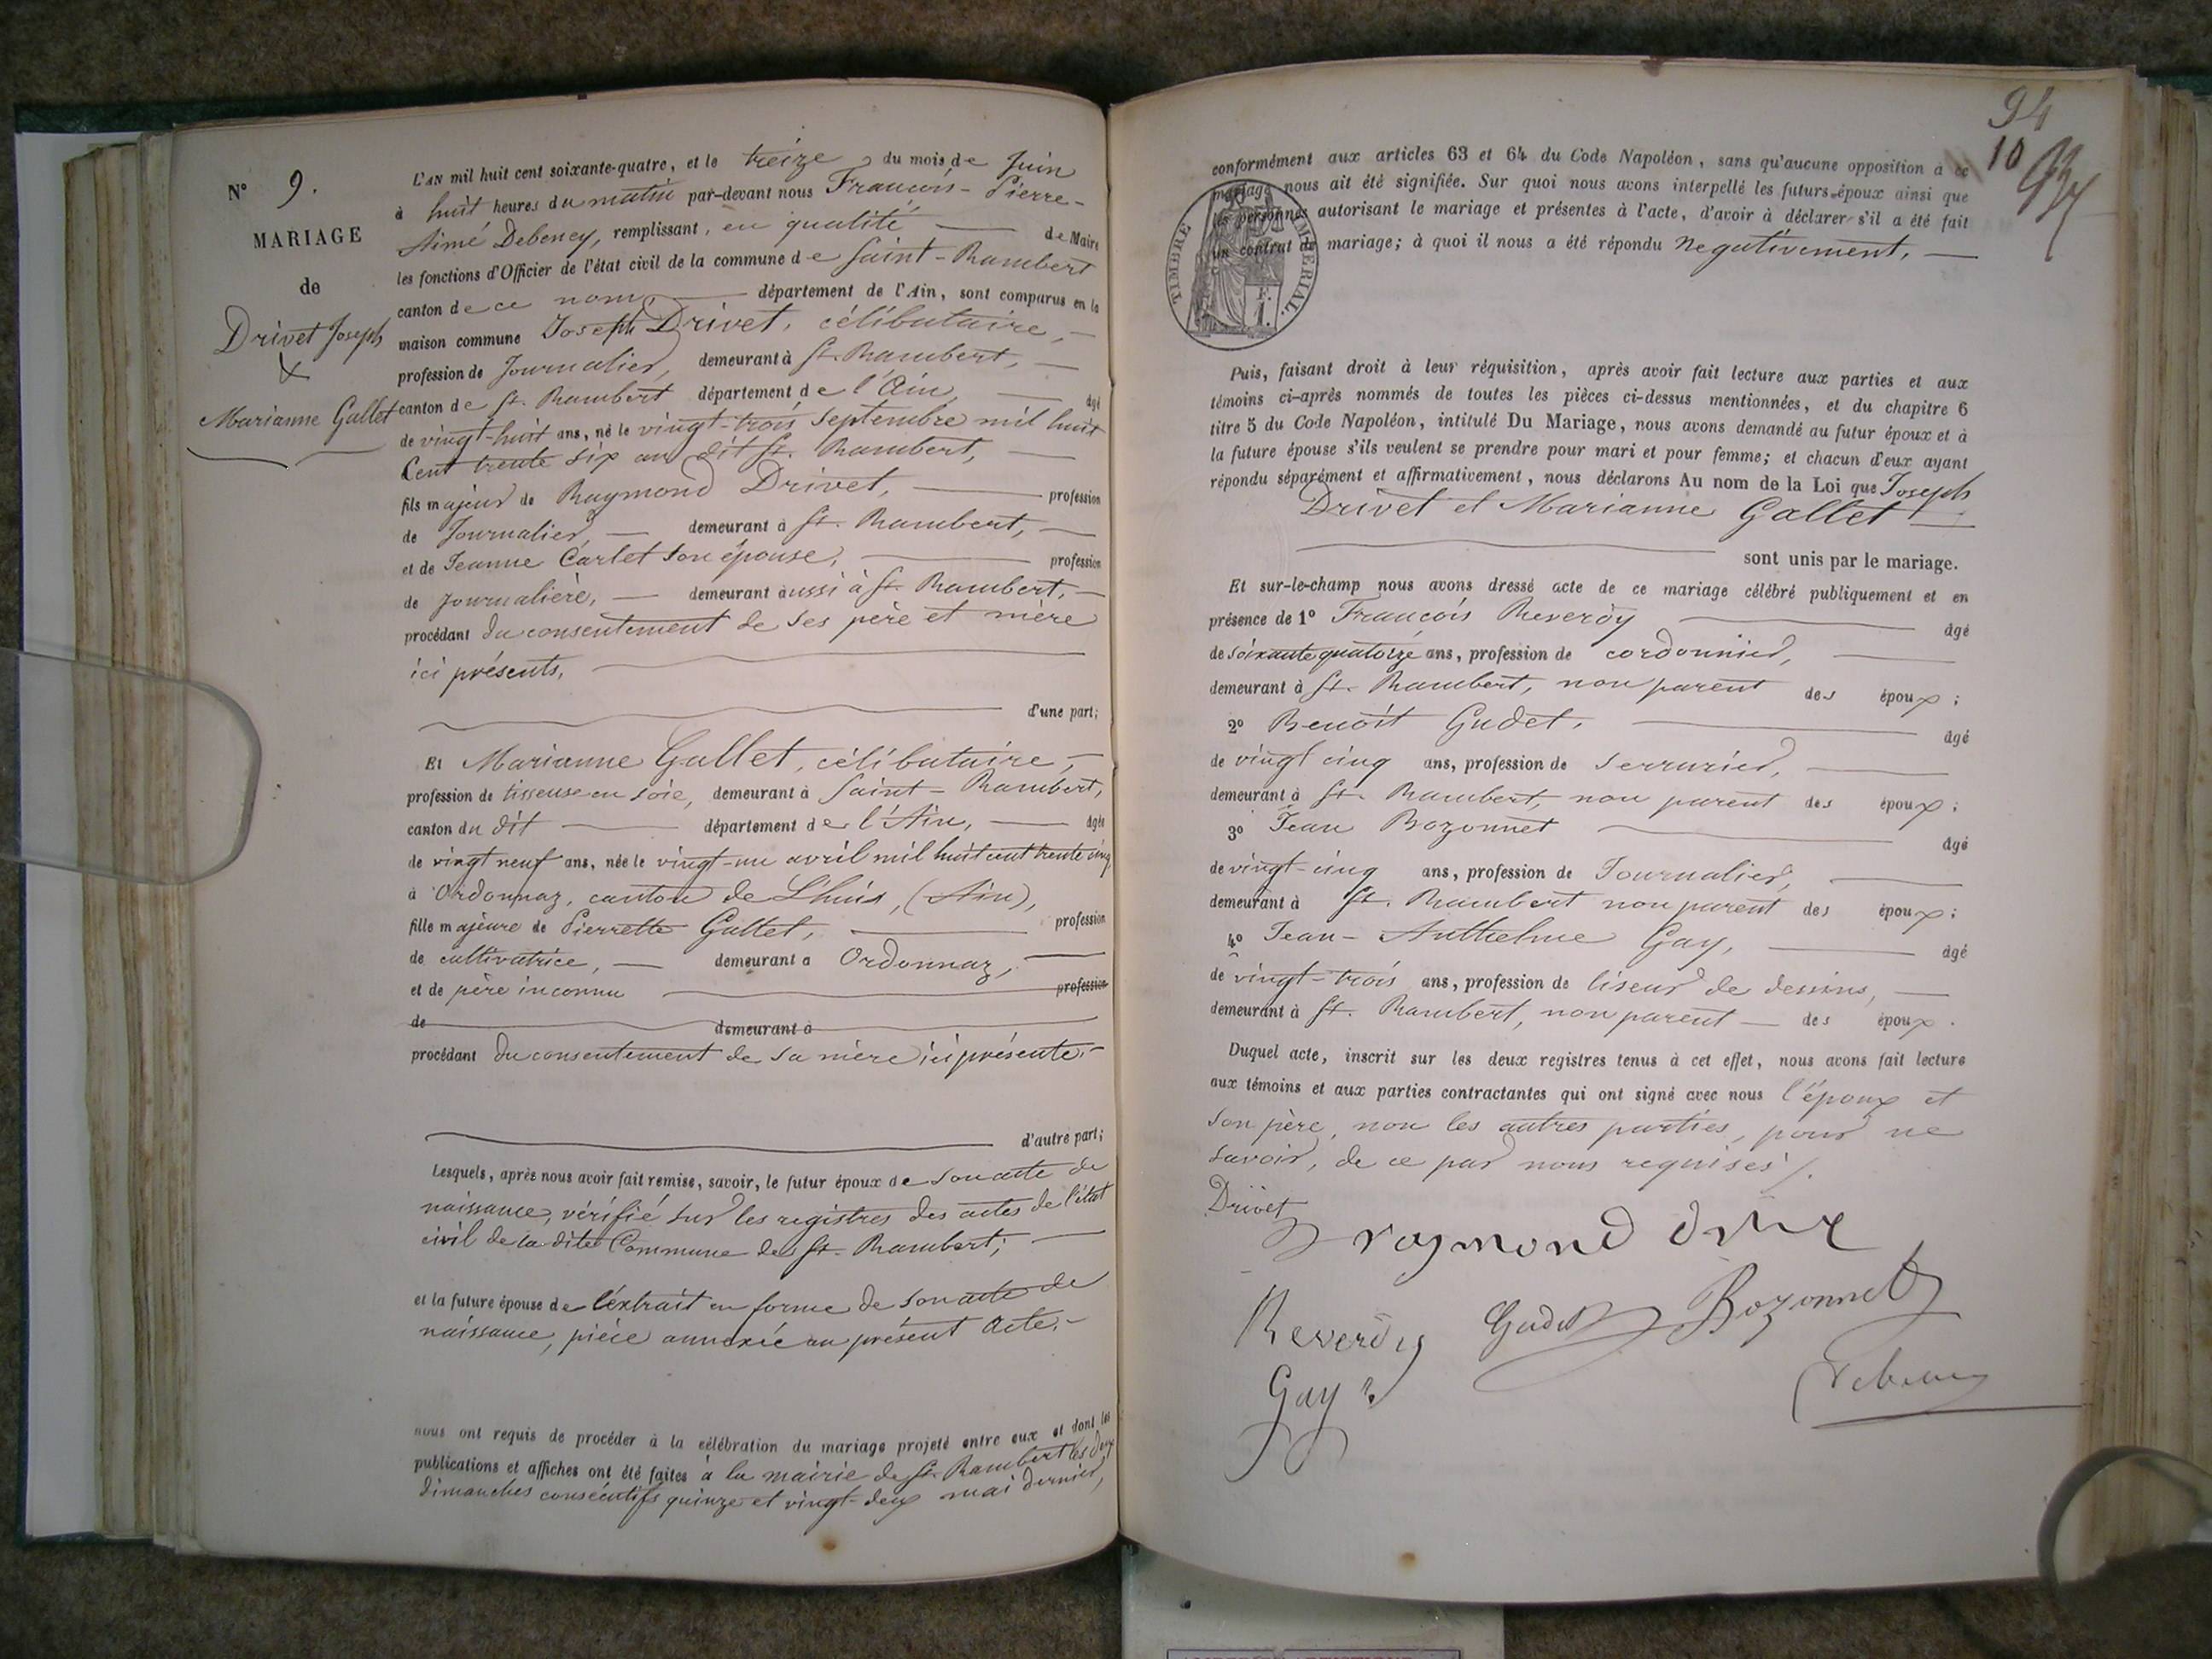 N° 9.
MARIAGE
de
Drivet Joseph
&
Marianne Gallet
L'AN mil huit cent soixante-quatre, et le treize du mois de Juin
à huit heures du matin par-devant nous François-Pierre-
Aimé Debeney, remplissant, en qualité de Maire
les fonctions d'Officier de l'état civil de la commune de Saint-Rambert
canton de ce nom, département de l'Ain, sont comparus en la
maison commune Joseph Drivet, célibataire,
profession de Journalier, demeurant à St. Rambert,
canton de St. Rambert département de l'Ain, âgé
de vingt-huit ans, né le vingt-trois septembre mil huit
Cent trente six au dit St. Rambert,
fils majeur de Raymond Drivet, profession
de Journalier, demeurant à St. Rambert,
et de Jeanne Carlet son épouse, profession
de journalière, demeurant aussi à St. Rambert,
procédant du consentement de ses père et mère
ici présents,
d'une part;
Et Marianne Gallet, célibataire,
profession de tisseuse en soie, demeurant à Saint-Rambert,
canton du dit département de l'Ain, âgée
de vingt neuf ans, née le vingt-un avril mil huit cent trente cinq
à Ordonnaz, canton de L'huis, (Ain),
fille majeure de Pierrette Gallet, profession
de cultivatrice, demeurant à Ordonnaz,
et de père inconnu profession
de demeurant à
procédant du consentement de sa mère ici présente.-
d'autre part;
Lesquels, après nous avoir fait remise, savoir, le futur époux de son acte de
naissance, vérifié sur les registres des actes de l'état
civil de la dite Commune de St. Rambert;
et la future épouse de l'extrait en forme de son acte de
naissance, pièce annexée au présent acte.-
nous ont requis de procéder à la célébration du mariage projeté entre eux et dont les
publications et affiches ont été faites à la mairie de St. Rambert les deux
dimanches consécutifs quinze et vingt-deux mai dernier,
94
10
conformément aux articles 63 et 64 du Code Napoléon, sans qu'aucune opposition à ce
mariage nous ait été signifiée. Sur quoi nous avons interpellé les futurs époux ainsi que
les personnes autorisant le mariage et présentes à l'acte, d'avoir à déclarer s'il a été fait
un contrat de mariage; à quoi il nous a été répondu Négativement,
TIMBRE IMPÉRIAL.
F.
1.
Puis, faisant droit à leur réquisition, après avoir fait lecture aux parties et aux
témoins ci-après nommés de toutes les pièces ci-dessus mentionnées, et du chapitre 6
titre 5 du Code Napoléon, intitulé Du Mariage, nous avons demandé au futur époux et à
la future épouse s'ils veulent se prendre pour mari et pour femme; et chacun d'eux ayant
répondu séparément et affirmativement, nous déclarons Au nom de la Loi que Joseph
Drivet et Marianne Gallet
sont unis par le mariage.
Et sur-le-champ nous avons dressé acte de ce mariage célébré publiquement et en
présence de 1° François Reverdy âgé
de soixante quatorze ans, profession de cordonnier,
demeurant à St. Rambert, non parent des époux;
2° Benoît Gudet, âgé
de vingt cinq ans, profession de serrurier,
demeurant à St. Rambert, non parent des époux;
3° Jean Bozonnet âgé
de vingt-cinq ans, profession de Journalier,
demeurant à St. Rambert non parent des époux;
4° Jean-Anthelme Gay, âgé
de vingt-trois ans, profession de liseur de dessins,
demeurant à St. Rambert, non parent des époux.
Duquel acte, inscrit sur les deux registres tenus à cet effet, nous avons fait lecture
aux témoins et aux parties contractantes qui ont signé avec nous l'époux et
son père, non les autres parties, pour ne
savoir, de ce par nous requises /.
Drivet
raymond drive
Reverdy Gudet Bozonnet
Gay Debeney